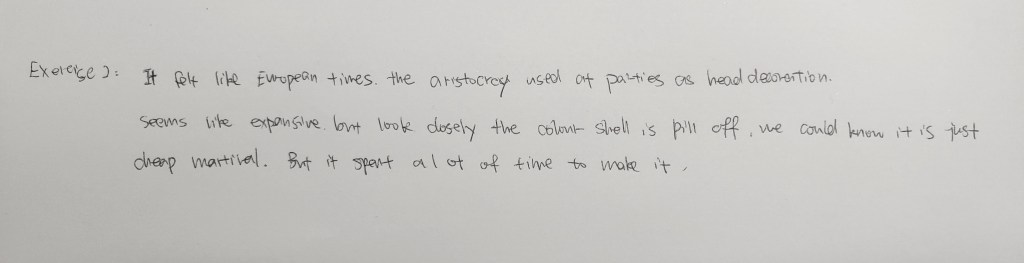 Exercise 2: It felt like European times. the aristocrecy used at parties as head decorartion.
seems like expansive. but look closely the colour shell is pill off, we could know it is just
cheap martiral. But it spent a lot of time to make it.